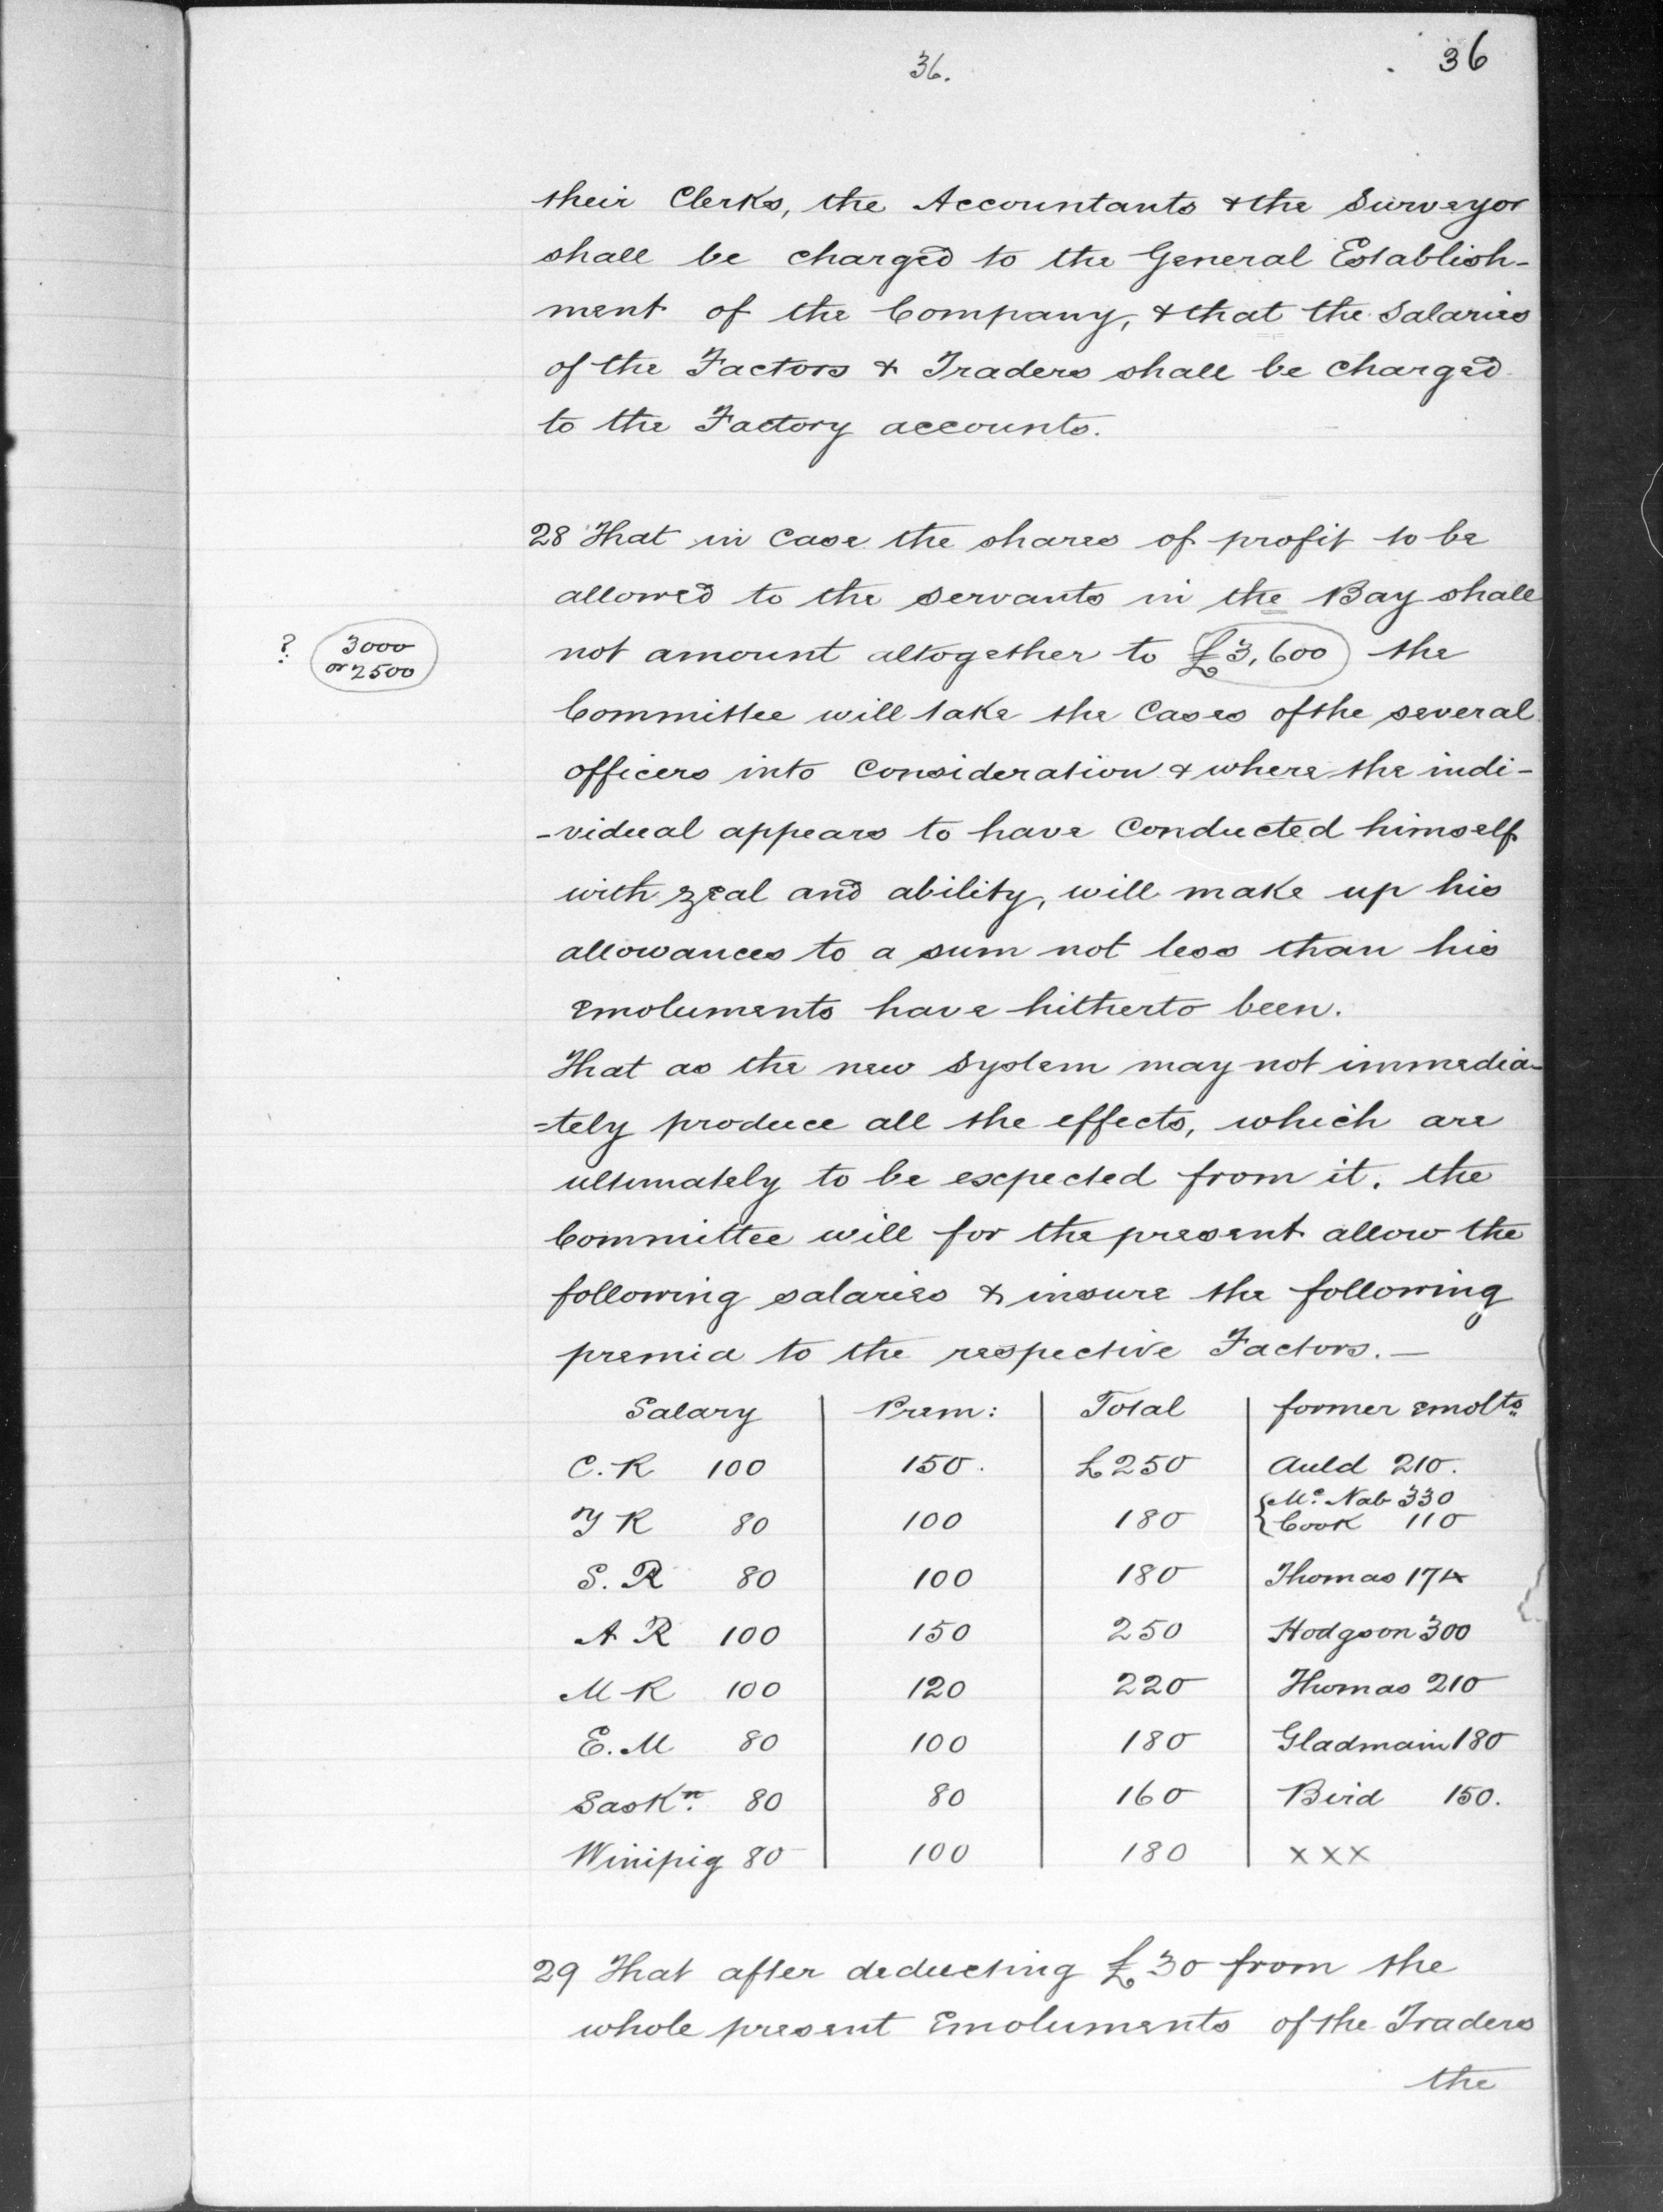 36.
36
their Clerks, the Accountants & the Surveyor
shall be charged to the General Establish-
ment of the Company, & that the Salaries
of the Factors & Traders shall be charged
to the Factory accounts.
28 That in case the shares of profit to be
allowed to the servants in the Bay shall
? 3000
or 2500
not amount altogether to £3,600 the
Committee will take the Cases of the several
officers into Consideration & where the indi-
-vidual appears to have Conducted himself
with zeal and ability, will make up his
allowances to a sum not less than his
Emoluments have hitherto been.
That as the new System may not immedia-
-tely produce all the effects, which are
ultimately to be expected from it. the
Committee will for the present allow the
following salaries & insure the following
premia to the respective Factors. —
Salary Prem: Total former emolts
C. R 100 150. £250 Auld 210.
Y R 80 100 180 { Mc. Nab 330
Cook 110
S. R 80 100 180 Thomas 174
A R 100 150 250 Hodgson 300
M R 100 120 220 Thomas 210
E. M 80 100 180 Gladmain 180
Saskn. 80 80 160 Bird 150.
Winipig 80 100 180 xxx
29 That after deducting £30 from the
whole present Emoluments of the Traders
the